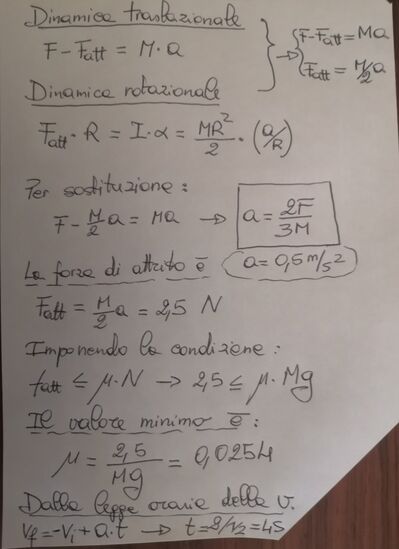 Dinamica traslazionale
F - Fatt = M·a
{F-Fatt = Ma
{Fatt = M/2 a
Dinamica rotazionale
Fatt·R = I·α = MR²/2 · (a/R)
Per sostituzione:
F - M/2 a = Ma → a = 2F/3M
La forza di attrito è
a = 0,5 m/s²
Fatt = M/2 a = 2,5 N
Imponendo la condizione:
fatt ≤ μ·N → 2,5 ≤ μ·Mg
Il valore minimo è:
μ = 2,5/Mg = 0,0254
Dalla legge oraria della v.
Vf = -Vi + a·t → t = 2/½ = 4s